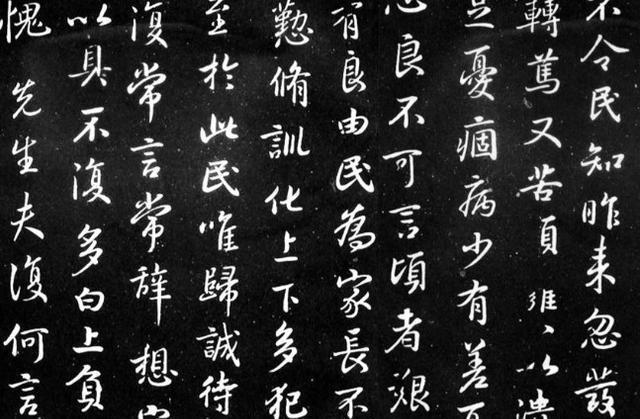 不令民知昨来忽發
轉篤又苦頁淮以
豈憂痼病少有差
良不可言頃者艱
有良由民為家長不
懃脩訓化上下多犯
至於此民唯歸誠待
復常言常辞想
以具不復多白上負
愧先生夫復何言